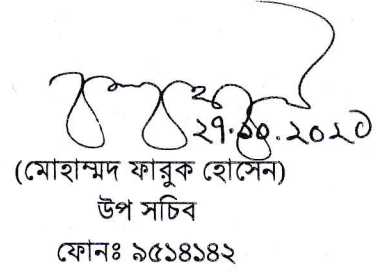 ২৭.১০.২০২০
(মোহাম্মদ ফারুক হোসেন)
উপ সচিব
ফোনঃ ৯৫১৪১৪২